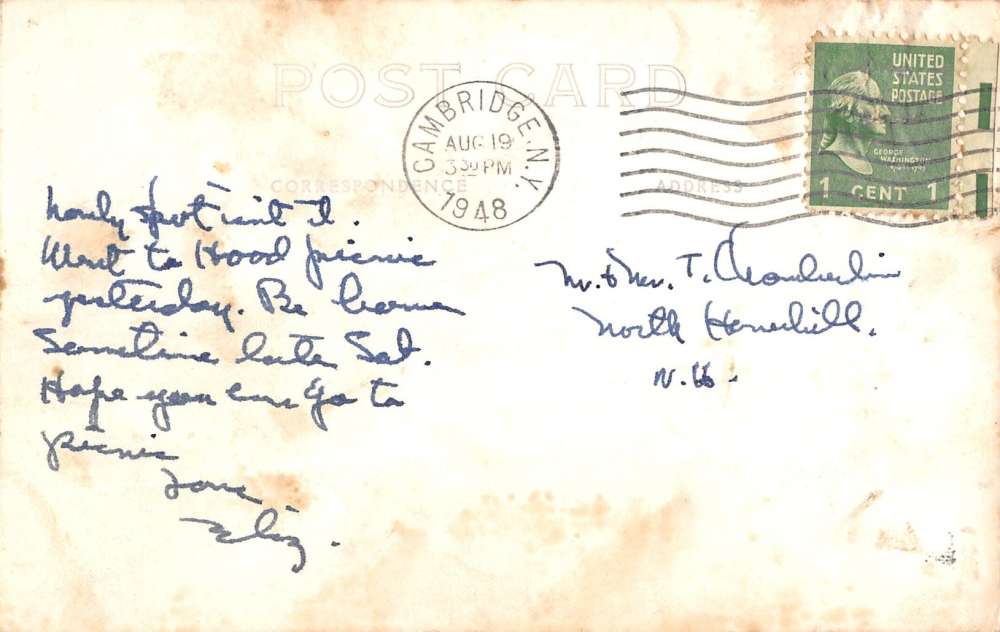 POST CARD
CORRESPONDENCE
ADDRESS
CAMBRIDGE. N.Y.
AUG 19
3 30 PM
1948
UNITED
STATES
POSTAGE
GEORGE
WASHINGTON
1 CENT 1
spot isn't it.
Went to Hood picnic
yesterday. Be home
Sometime late Sat.
Hope you can go to
picnic
Love
Eliz.
Mr. & Mrs. T. Chamberlin
North Haverhill.
N. H.